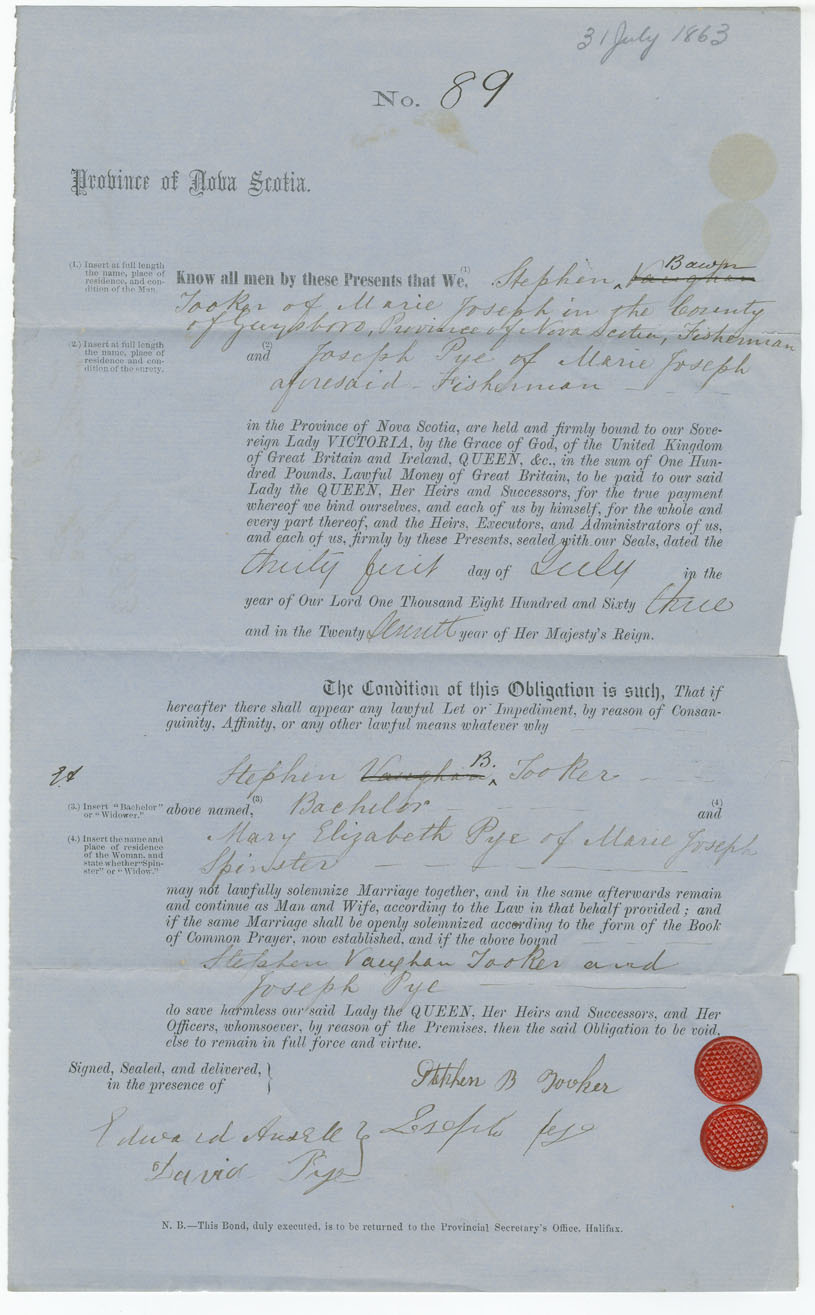 31 July 1863
No. 89
Province of Nova Scotia.
(1.) Insert at full length
the name, place of
residence, and con-
dition of the Man.
Know all men by these Presents that We, (1) Stephen ‸ Bawn Vaughan
Tooker of Marie Joseph in the County
of Guysboro, Province of Nova Scotia, Fisherman
(2.) Insert at full length
the name, place of
residence and con-
dition of the surety.
(2)
and Joseph Pye of Marie Joseph
aforesaid - Fisherman
in the Province of Nova Scotia, are held and firmly bound to our Sove-
reign Lady VICTORIA, by the Grace of God, of the United Kingdom
of Great Britain and Ireland, QUEEN, &c., in the sum of One Hun-
dred Pounds, Lawful Money of Great Britain, to be paid to our said
Lady the QUEEN, Her Heirs and Successors, for the true payment
whereof we bind ourselves, and each of us by himself, for the whole and
every part thereof, and the Heirs, Executors, and Administrators of us,
and each of us, firmly by these Presents, sealed with our Seals, dated the
thirty first day of July in the
year of Our Lord One Thousand Eight Hundred and Sixty three
and in the Twenty Seventh year of Her Majesty's Reign.
The Condition of this Obligation is such, That if
hereafter there shall appear any lawful Let or Impediment, by reason of Consan-
guinity, Affinity, or any other lawful means whatever why
Stephen Vaughan ‸ B. Tooker
(3.) Insert "Bachelor"
or "Widower."
above named, (3) Bachelor (4) and
(4.) Insert the name and
place of residence
of the Woman, and
state whether "Spin-
ster" or "Widow."
Mary Elizabeth Pye of Marie Joseph
Spinster
may not lawfully solemnize Marriage together, and in the same afterwards remain
and continue as Man and Wife, according to the Law in that behalf provided; and
if the same Marriage shall be openly solemnized according to the form of the Book
of Common Prayer, now established, and if the above bound
Stephen Vaughan Tooker and
Joseph Pye
do save harmless our said Lady the QUEEN, Her Heirs and Successors, and Her
Officers, whomsoever, by reason of the Premises, then the said Obligation to be void,
else to remain in full force and virtue.
Signed, Sealed, and delivered,
in the presence of
Stephen B Tooker
Edward Ansell Joseph Pye
David Pye
N. B.—This Bond, duly executed, is to be returned to the Provincial Secretary's Office, Halifax.